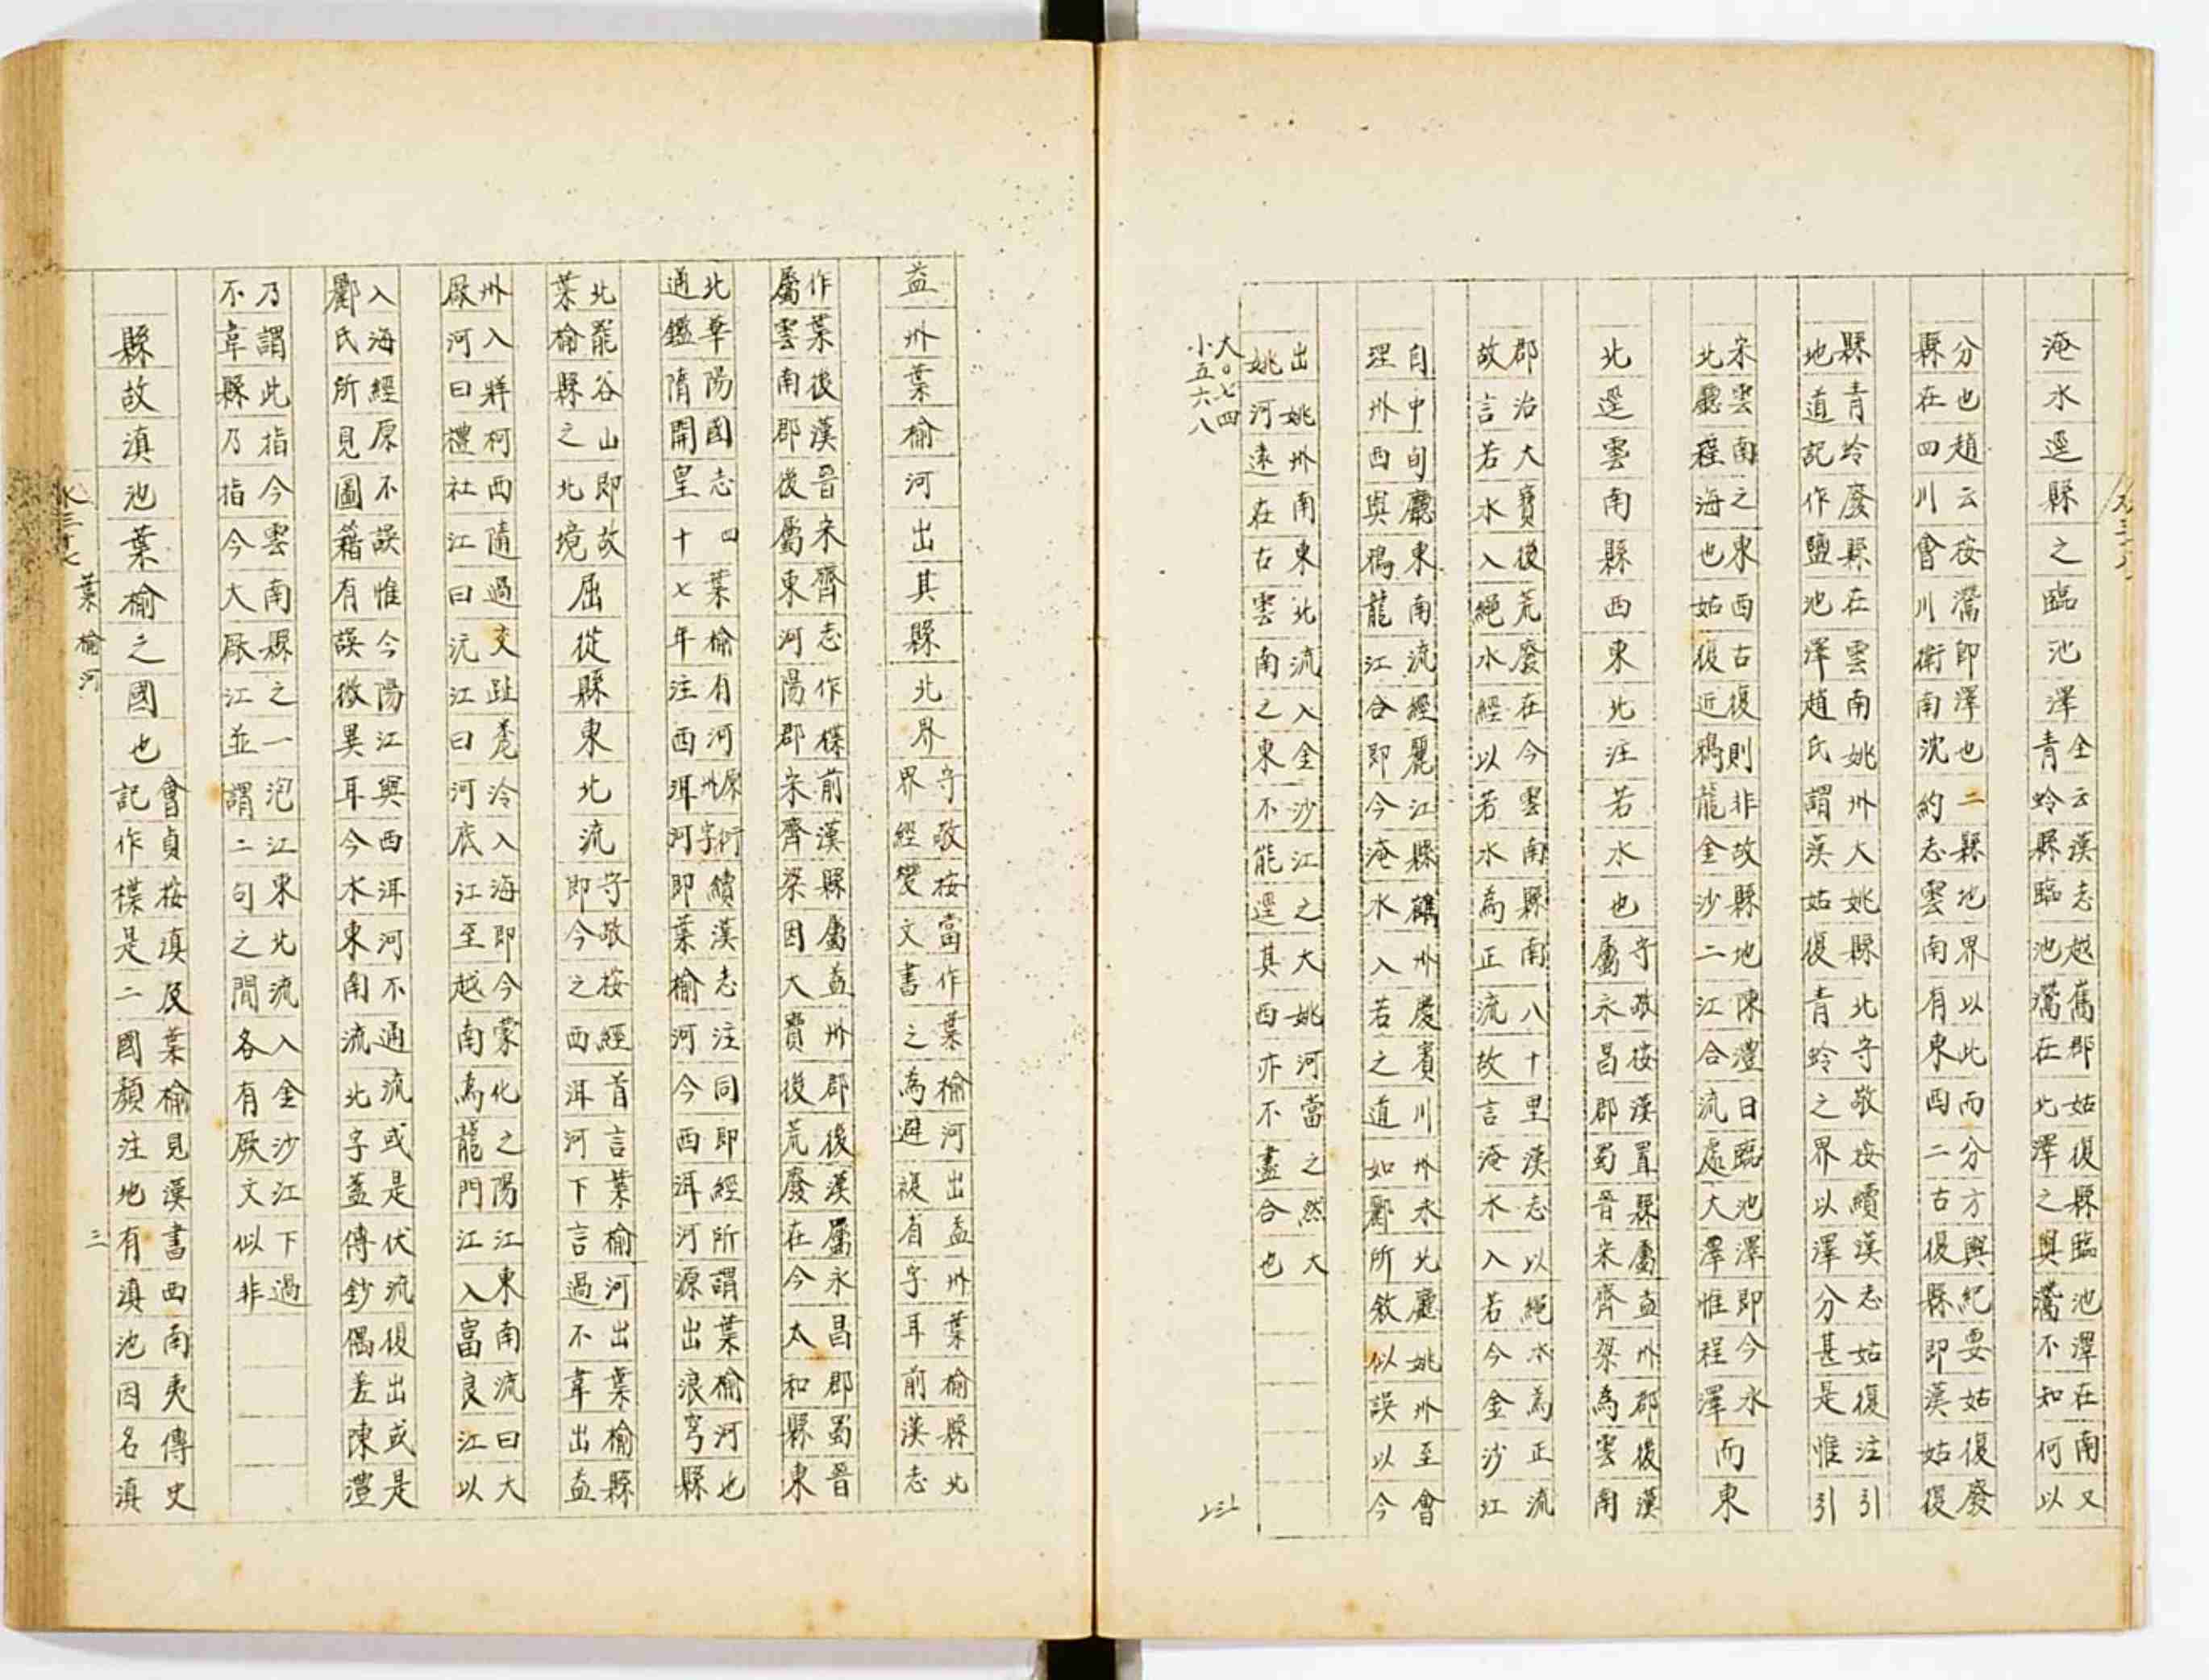 淹水逕縣之臨池澤
全云漢志越嶲郡姑復縣臨池澤在南又
青蛉縣臨池灊在北澤之與灊不知何以
分也趙云按灊即澤也二縣池界以此而分方輿紀要姑復廢
縣在四川會川衛南沈約志雲南有東西二古復縣即漢姑復
縣青蛉廢縣在雲南姚州大姚縣北守敬按續漢志姑復注引
地道記作鹽池澤趙氏謂漢姑復青蛉之界以澤分甚是惟引
宋雲南之東西古復則非故縣地陳澧曰臨池澤即今永
北廳程海也姑復近鴉龍金沙二江合流處大澤惟程澤
而東
北逕雲南縣西東北注若水也
守敬按漢置縣屬益州郡後漢
屬永昌郡蜀晉宋齊梁為雲南
郡治大寶後荒廢在今雲南縣南八十里漢志以繩水為正流
故言若水入繩水經以若水為正流故言淹水入若今金沙江
自中甸廳東南流經麗江縣鶴州慶賓川州永北廳姚州至會
理州西與鴉龍江合即今淹水入若之道如酈所敘似誤以今
出姚州南東北流入金沙江之大姚河當之然大
姚河遠在古雲南之東不能逕其西亦不盡合也
大〇七四
小五六八
益州葉榆河出其縣北界
守敬按當作葉榆河出益州葉榆縣北
界經變文書之為避複省字耳前漢志
作葉後漢晉宋齊志作楪前漢縣屬益州郡後漢屬永昌郡蜀晉
屬雲南郡後屬東河陽郡宋齊梁因大寶後荒廢在今太和縣東
北華陽國志四葉榆有河河州原字衍續漢志注同即經所謂葉榆河也
通鑑隋開皇十七年注西洱河即葉榆河今西洱河源出浪穹縣
北罷谷山即故
葉榆縣之北境
屈從縣東北流
守敬按經首言葉榆河出葉榆縣
即今之西洱河下言過不韋出益
州入牂柯西隨過交趾麊泠入海即今蒙化之陽江東南流曰大
厰河曰禮社江曰沅江曰河底江至越南為龍門江入富良江以
入海經原不誤惟今陽江與西洱河不通流或是伏流復出或是
酈氏所見圖籍有誤微異耳今水東南流北字蓋傳鈔偶差陳澧
乃謂此指今雲南縣之一泡江東北流入金沙江下過
不韋縣乃指今大厰江並謂二句之間各有厥文似非
縣故滇池葉榆之國也
會貞按滇及葉榆見漢書西南夷傳史
記作楪是二國顏注地有滇池因名滇
水三十七
葉榆河
三